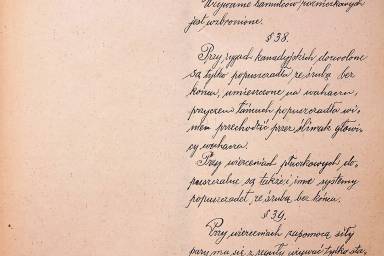 Używanie łańcuchów rozniekowych
jest wzbronione.
§ 38.
Przy rygach kanadyjskich dozwolone
są tylko popuszczadła ze śrubą bez
końca, umieszczone na wahaczu,
przyczem łańcuch popuszczadła wi-
nien przechodzić przez ślimak głowi-
cy wahacza.
Przy wierceniach płuczkowych do-
puszczalne są także i inne systemy
popuszczadeł, ze śrubą bez końca.
§ 39.
Przy wierceniach zapomocą siły
pary ma się z reguły używać tylko sta-